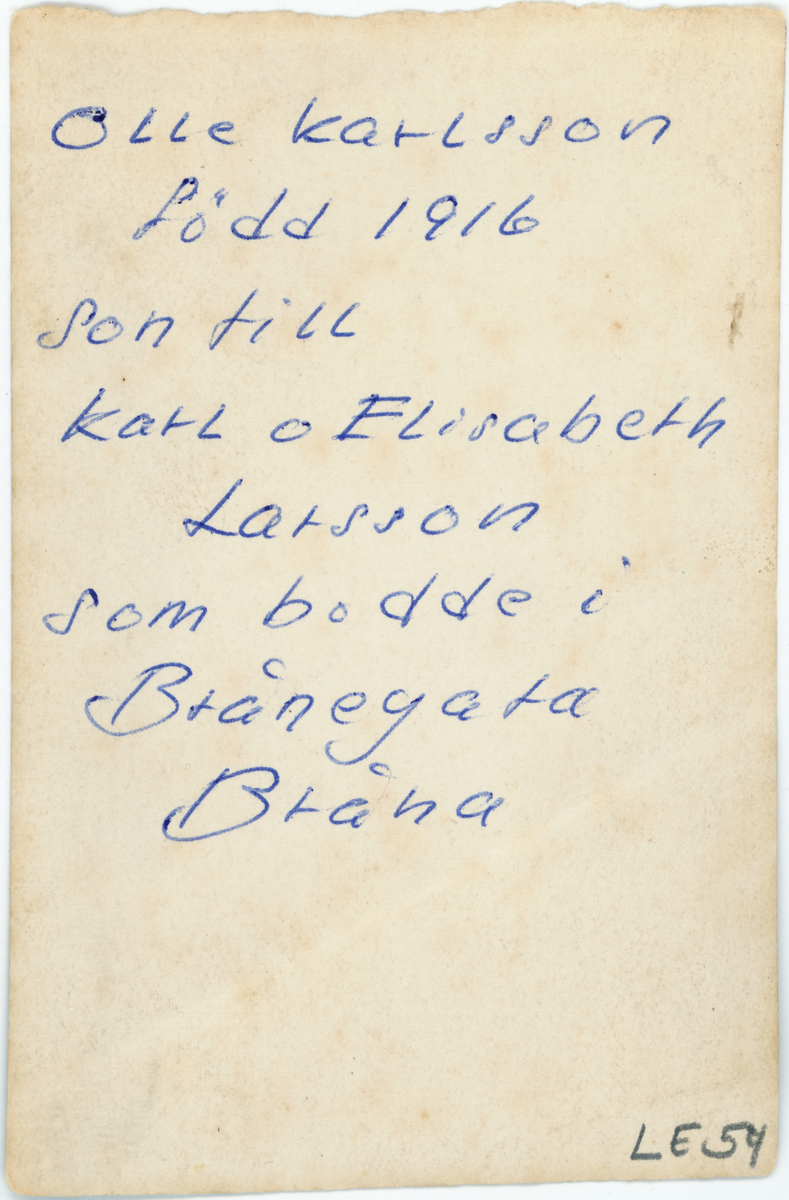 Olle Karlsson
född 1916
son till
Karl o Elisabeth
Larsson
som bodde i
Brånegata
Bråna
LE 54